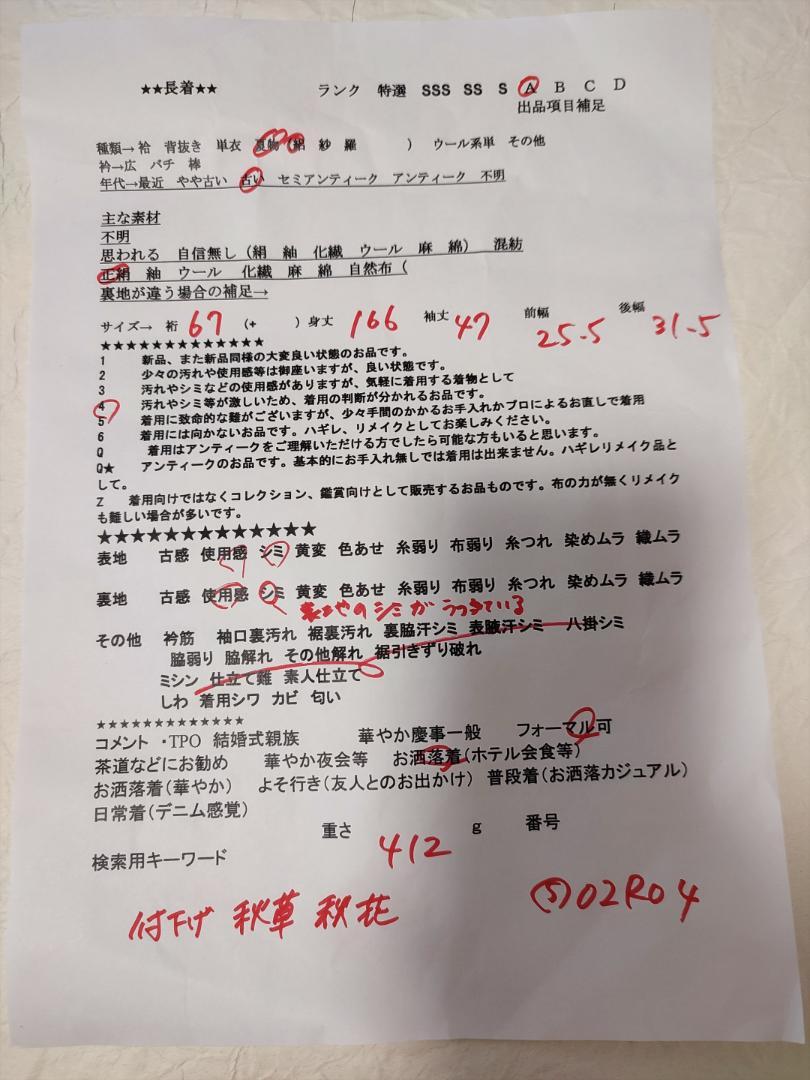 ★★長着★★　ランク　特選　SSS　SS　S　A　B　C　D
出品項目補足
種類→ 袷　背抜き　単衣　夏物（絽　紗　羅　　　）　ウール系単　その他
衿→広　バチ　棒
年代→最近　やや古い　古い　セミアンティーク　アンティーク　不明
主な素材
不明
思われる　自信無し（絹　紬　化繊　ウール　麻　綿）　混紡
正絹　紬　ウール　化繊　麻　綿　自然布（
裏地が違う場合の補足→
サイズ→　裄　67　（+　　　）身丈　166　袖丈　47　前幅　25.5　後幅　31.5
★★★★★★★★★★★★★
1　新品、また新品同様の大変良い状態のお品です。
2　少々の汚れや使用感等は御座いますが、良い状態です。
3　汚れやシミなどの使用感がありますが、気軽に着用する着物として
4　汚れやシミ等が激しいため、着用の判断が分かれるお品です。
5　着用に致命的な難がございますが、少々手間のかかるお手入れかプロによるお直しで着用
6　着用には向かないお品です。ハギレ、リメイクとしてお楽しみください。
Q　着用はアンティークをご理解いただける方でしたら可能な方もいると思います。
Q★　アンティークのお品です。基本的にお手入れ無しでは着用は出来ません。ハギレリメイク品と
して。
Z　着用向けではなくコレクション、鑑賞向けとして販売するお品ものです。布の力が無くリメイク
も難しい場合が多いです。
★★★★★★★★★★★★★
表地　古感　使用感　シミ　黄変　色あせ　糸弱り　布弱り　糸つれ　染めムラ　織ムラ
裏地　古感　使用感　シミ　黄変　色あせ　糸弱り　布弱り　糸つれ　染めムラ　織ムラ
表地のシミがうつっている
その他　衿筋　袖口裏汚れ　裾裏汚れ　裏脇汗シミ　表腋汗シミ　八掛シミ
脇弱り　脇解れ　その他解れ　裾引きずり破れ
ミシン　仕立て難　素人仕立て
しわ　着用シワ　カビ　匂い
★★★★★★★★★★★★★
コメント　・TPO　結婚式親族　華やか慶事一般　フォーマル可
茶道などにお勧め　華やか夜会等　お洒落着（ホテル会食等）
お洒落着（華やか）　よそ行き（友人とのお出かけ）　普段着（お洒落カジュアル）
日常着（デニム感覚）
重さ　412　g　番号
検索用キーワード
付下げ　秋草　秋花　(S)02R04